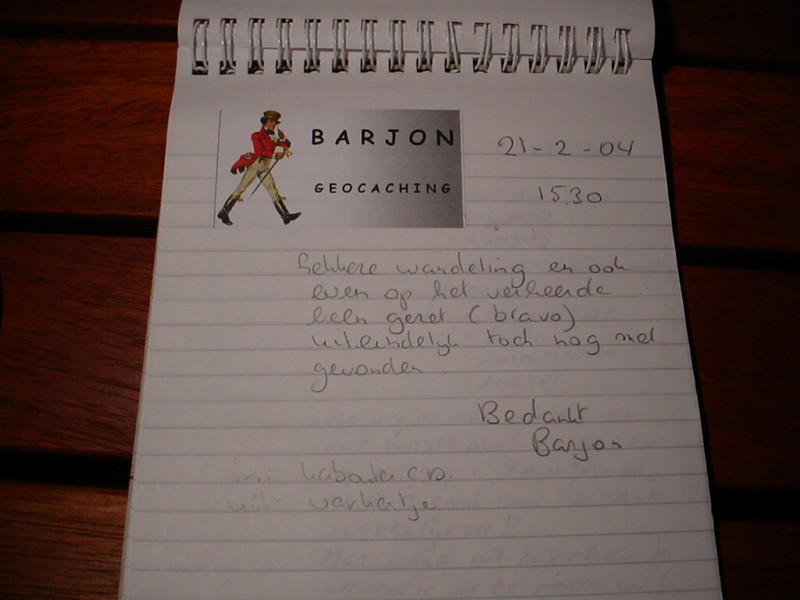 BARJON
GEOCACHING
21-2-04
15.30
Lekkere wandeling en ook
even op het verkeerde
been gezet (bravo)
uiteindelijk toch nog met
gevonden
Bedankt
Barjon
uit varkentje